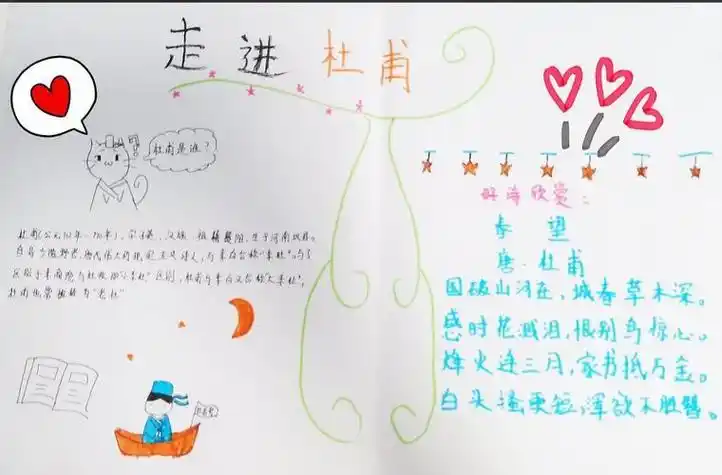 走进 杜甫
杜甫是谁？
杜甫(公元712年-770年)，字子美，汉族，祖籍襄阳，生于河南巩县。
自号少陵野老，唐代伟大的现实主义诗人，与李白合称"李杜"。为了
区别于李商隐与杜牧即"小李杜"区别，杜甫与李白又合称"大李杜"，
杜甫也常被称为"老杜"
好诗欣赏：
春 望
唐·杜甫
国破山河在，城春草木深。
感时花溅泪，恨别鸟惊心。
烽火连三月，家书抵万金。
白头搔更短，浑欲不胜簪。